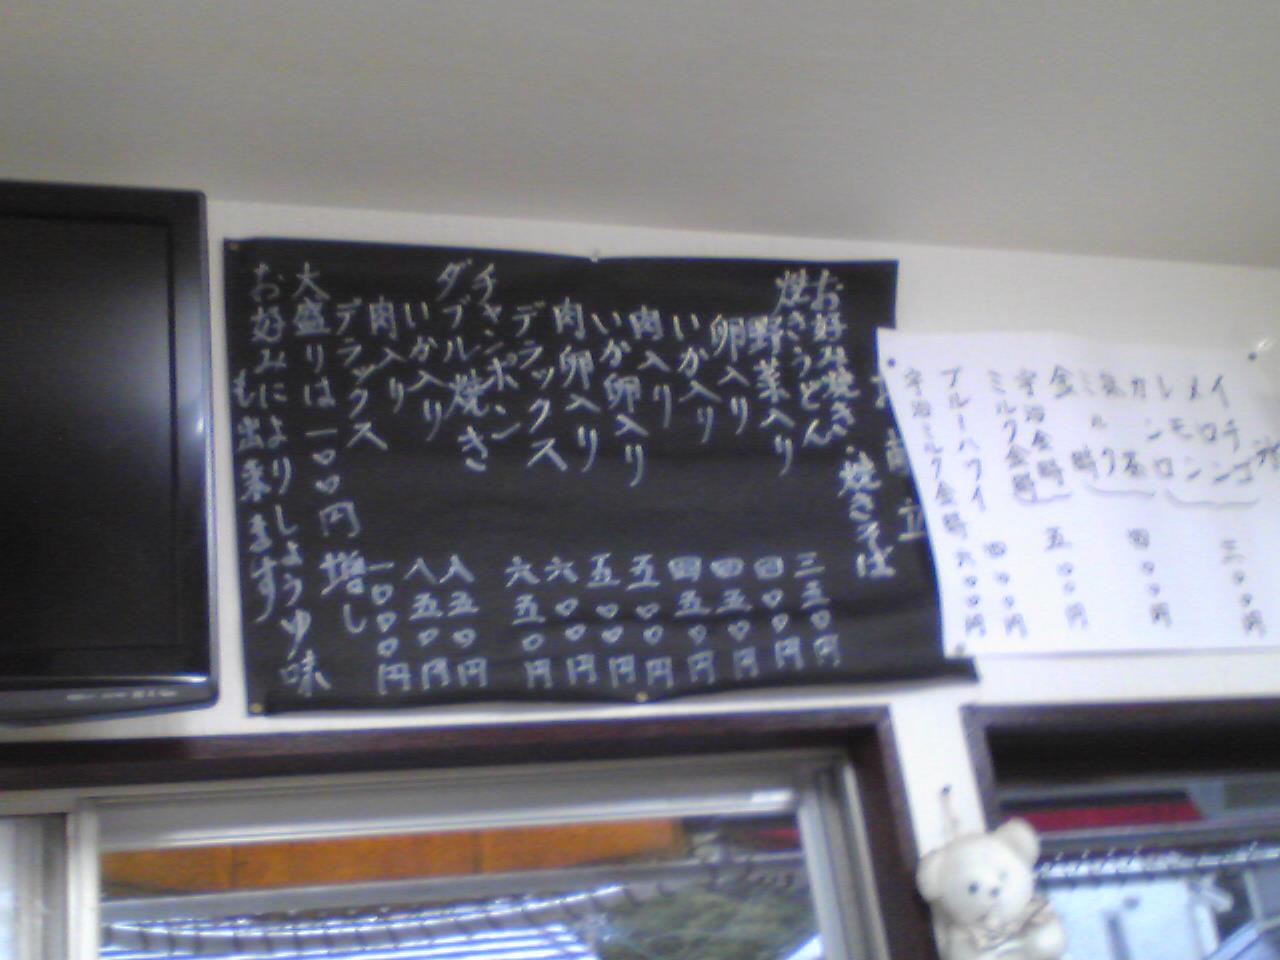 氷
イチゴ
メロン
レモン
三〇〇円
四〇〇円
金時
五〇〇円
宇治金時
ミルク金時
ブルーハワイ
四〇〇円
宇治ミルク金時 六〇〇円
お献立
お好み焼き・焼きそば
焼きうどん
野菜入り 三三〇円
卵入り 四〇〇円
いか入り 四五〇円
肉入り 四五〇円
いか卵入り 五〇〇円
肉卵入り 五〇〇円
デラックス 六〇〇円
チャンポン 六五〇円
ダブル焼き
いか入り 八五〇円
肉入り 八五〇円
デラックス 一〇〇〇円
大盛りは一〇〇円増し
お好みによりしょうゆ味
も出来ます